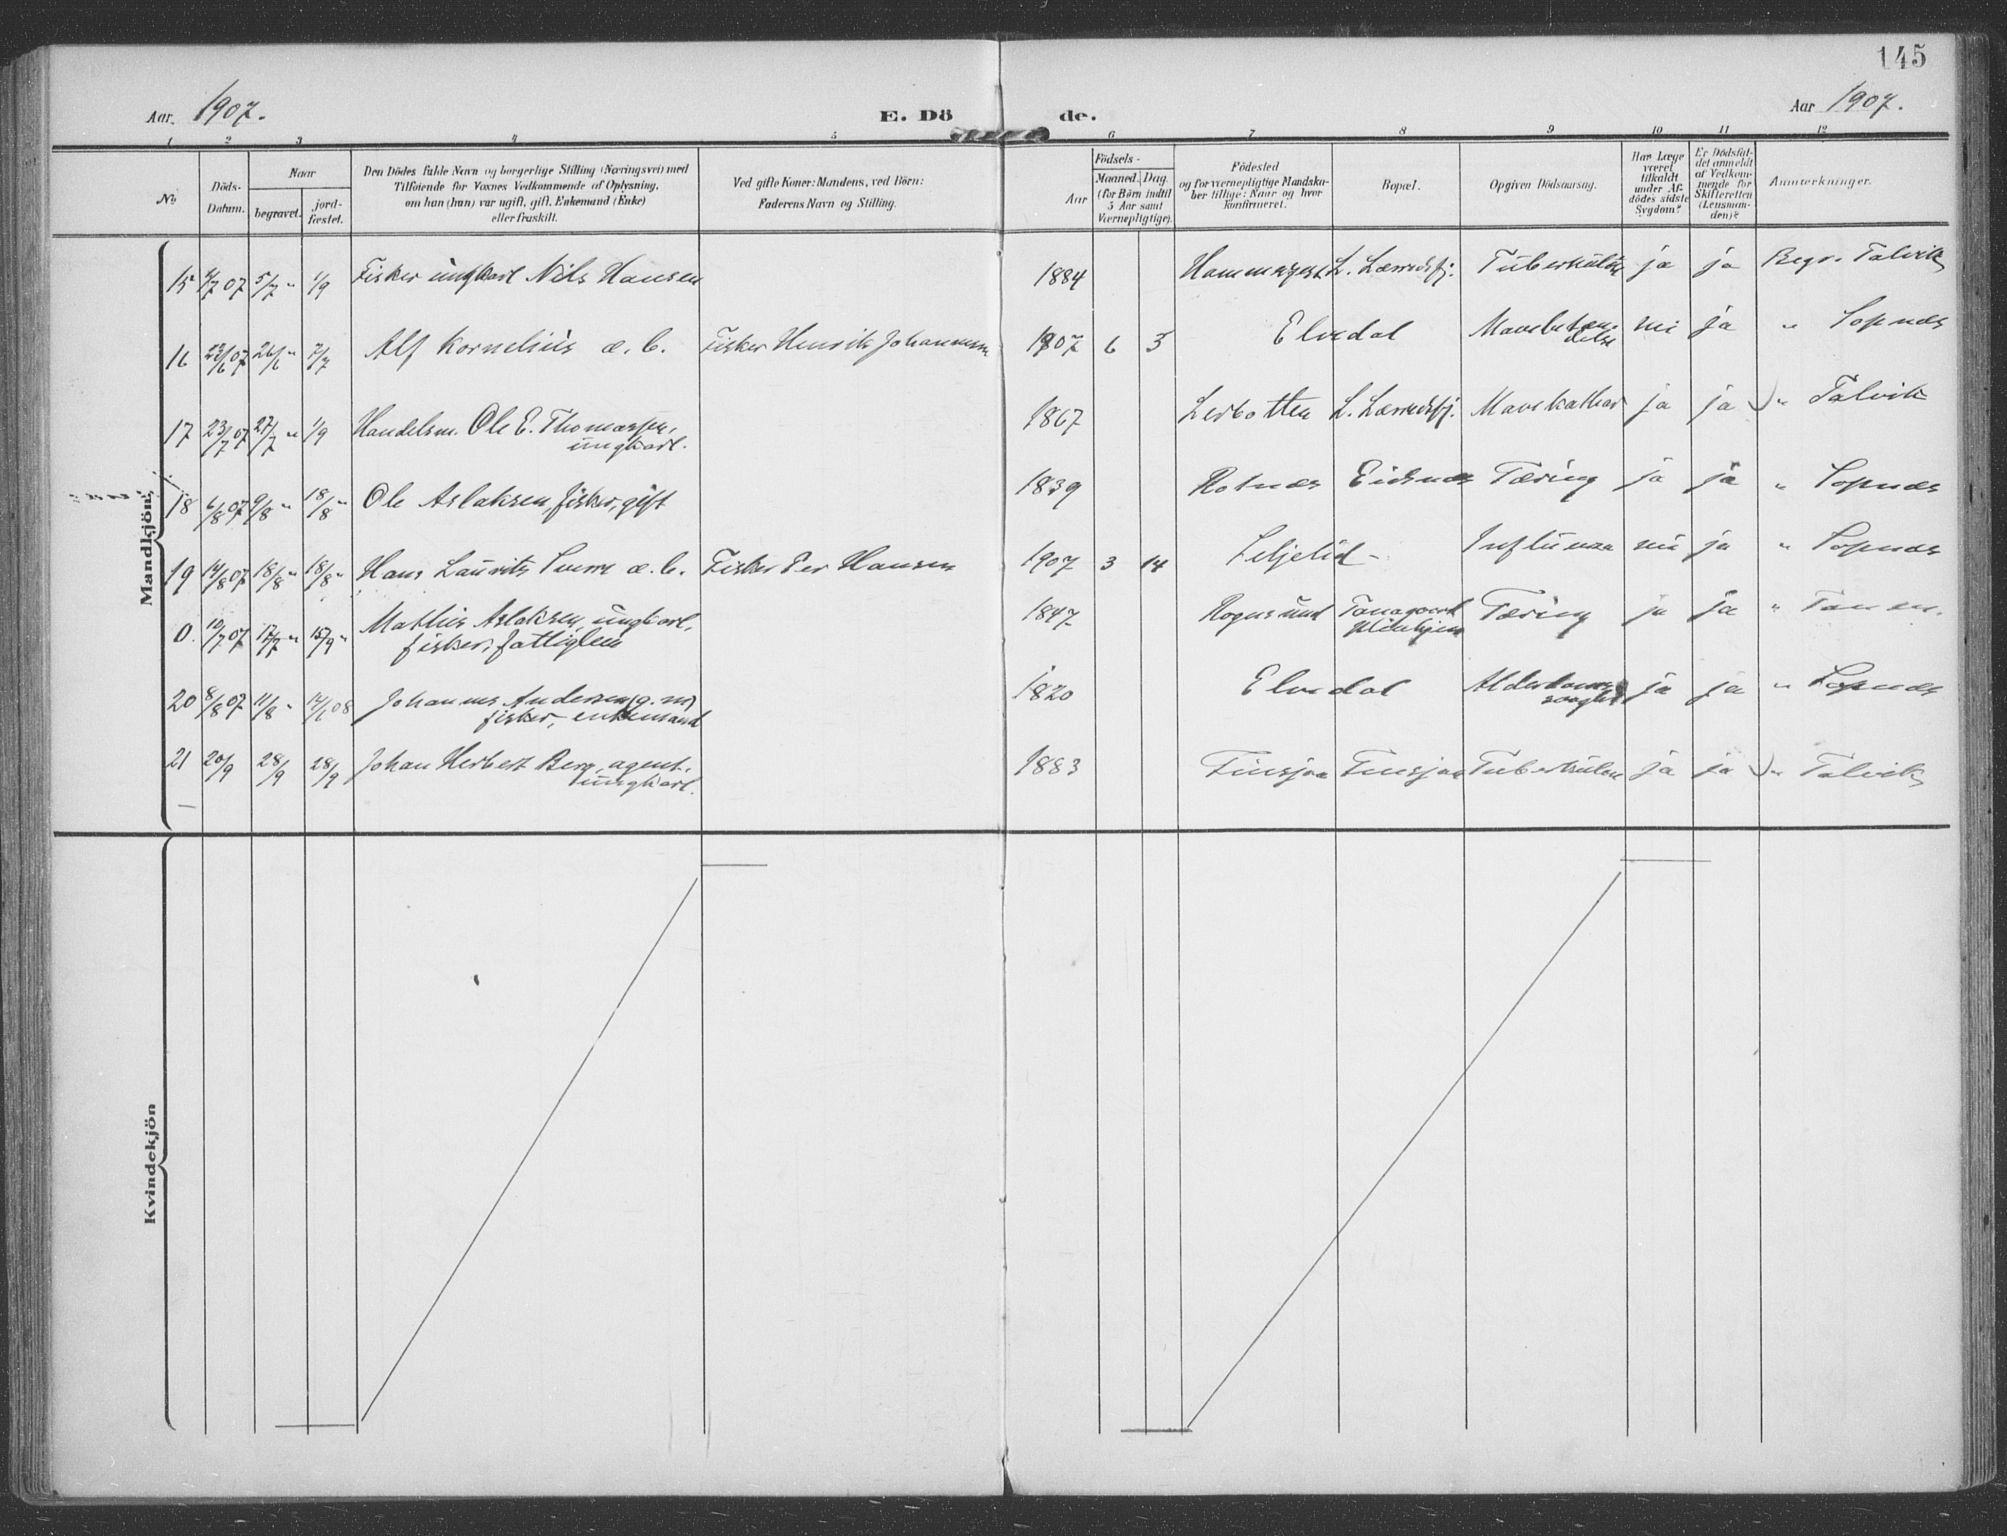 145
Aar 1907.
E. Dö
de.
Aar 1907.
1 2 3 4 5 6 7 8 9 10 11 12
No
Döds-
Datum.
Naar
begravet.
jord-
fæstet.
Den Dödes fulde Navn og borgerlige Stilling (Næringsvei) med
Tilföiende for Voxnes Vedkommende af Oplysning,
om han (hun) var ugift, gift, Enkemand (Enke)
eller fraskilt.
Ved gifte Koner: Mandens, ved Börn:
Faderens Navn og Stilling.
Födsels-
Aar
Maaned. Dag.
(for Börn indtil
5 Aar samt
Værnepligtige).
Födested
og for værnepligtige Mandska-
ber tillige: Naar og hvor
konfirmeret.
Bopæl.
Opgiven Dödsaarsag.
Har Læge
været
tilkaldt
under Af-
dödes sidste
Sygdom?
Er Dödsfal-
det anmeldt
af Vedkom-
mende for
Skifteretten
(Lensman-
den)?
Anmerkninger.
Mandkjön.
15 2/7 07 5/7 " 1/9 Fisker ungkarl Nils Hansen 1884 L. Lærredsfj. Tuberkulose ja ja Begr. Talvik
16 23/6 07 26/6 " 7/7 Alf Kornelius æ. b. Fisker Henrik Johannessen 1907 6 3 Elvedal Mavebetæn-
delse nei ja " Sopnæs
17 23/7 07 27/7 " 1/9 Handelsm. Ole E. Thomassen,
ungkarl. 1867 Lerbotten L. Lærredsfj. Mavekathar ja ja " Talvik
18 6/8 07 9/8 " 18/8 " Ole Aslaksen, fisker, gift 1839 Rotnæs Eidsnæs Tæring ja ja " Sopnæs
19 14/8 07 18/8 " 18/8 " Hans Laurits Sverre æ. b. Fisker Per Hansen 1907 3 14 Liljelid – Influenza nei ja " Sopnæs
0. 12/7 07 17/7 " 15/9 " Mathis Aslaksen, ungkarl,
fisker, fattiglem 1847 Rognsund Tanagaard
pleiehjem Tæring ja ja " Tanen.
20 8/8 07 11/8 " 14/6 08 Johannes Andersen (g. m)
fisker, enkemand 1820 Elvedal ja ja " Sopnæs
21 20/9 28/9 28/9 Johan Herbert Berg, agent,
ungkarl. 1883 Tinsjaa Tinsjaa Tuberkulose ja ja " Talvik
Kvindekjön